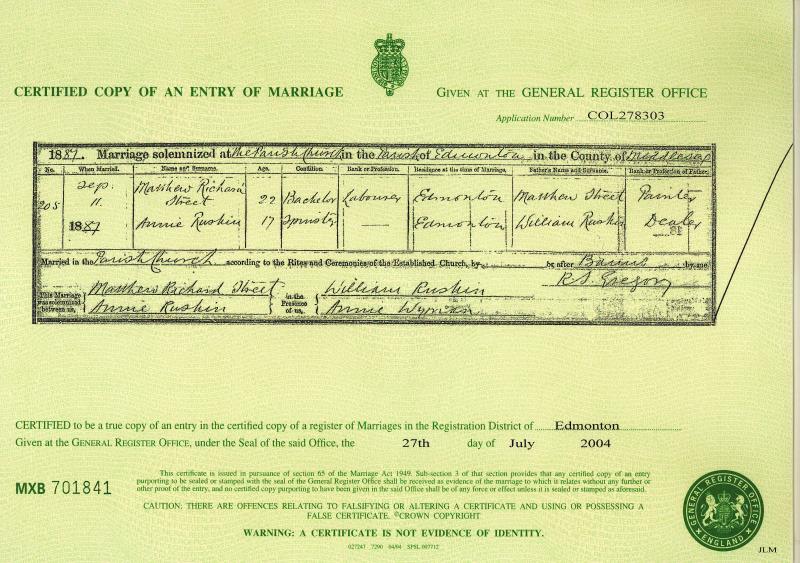 CERTIFIED COPY OF AN ENTRY OF MARRIAGE
GIVEN AT THE GENERAL REGISTER OFFICE
Application Number COL278303
1887. Marriage solemnized at the Parish Church in the Parish of Edmonton in the County of Middlesex
No. When Married. Name and Surname. Age. Condition. Rank or Profession. Residence at the time of Marriage. Father's Name and Surname. Rank or Profession of Father.
205 Sep. 11. 1887
Matthew Richard Street 22 Bachelor Labourer Edmonton Matthew Street Painter
Annie Ruskin 17 Spinster — Edmonton William Ruskin Dealer
Married in the Parish Church according to the Rites and Ceremonies of the Established Church, by or after Banns by me,
R S Gregory
This Marriage was solemnized between us, Matthew Richard Street Annie Ruskin
in the Presence of us, William Ruskin Annie Wyman
CERTIFIED to be a true copy of an entry in the certified copy of a register of Marriages in the Registration District of Edmonton
Given at the GENERAL REGISTER OFFICE, under the Seal of the said Office, the 27th day of July 2004
MXB 701841
This certificate is issued in pursuance of section 65 of the Marriage Act 1949. Sub-section 3 of that section provides that any certified copy of an entry
purporting to be sealed or stamped with the seal of the General Register Office shall be received as evidence of the marriage to which it relates without any further or
other proof of the entry, and no certified copy purporting to have been given in the said Office shall be of any force or effect unless it is sealed or stamped as aforesaid.
CAUTION: THERE ARE OFFENCES RELATING TO FALSIFYING OR ALTERING A CERTIFICATE AND USING OR POSSESSING A
FALSE CERTIFICATE. ©CROWN COPYRIGHT
WARNING: A CERTIFICATE IS NOT EVIDENCE OF IDENTITY.
027247 7290 04/04 SPSL 007712
GENERAL REGISTER OFFICE
ENGLAND
JLM